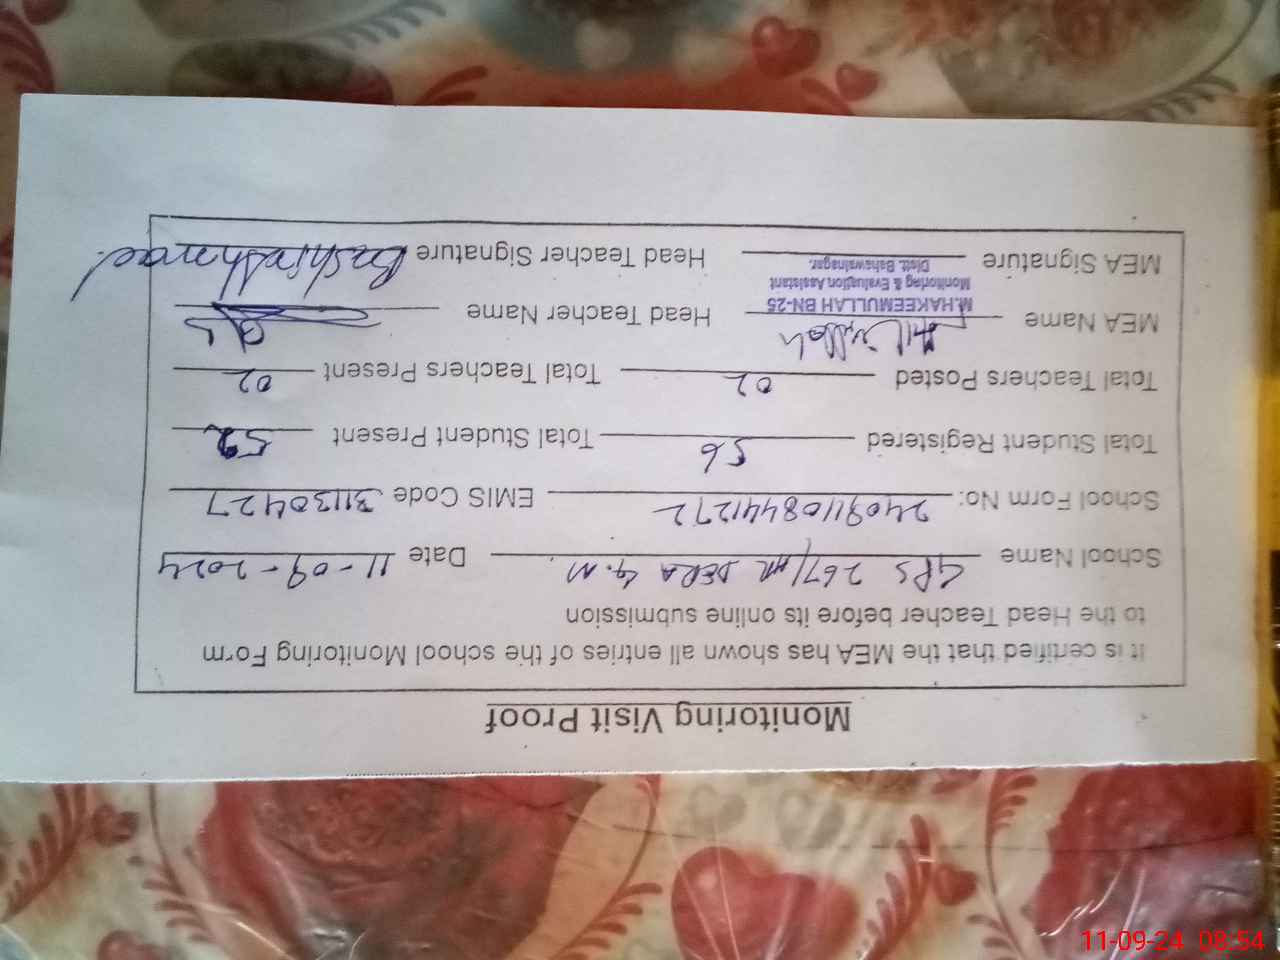 Monitoring Visit Proof
It is certified that the MEA has shown all entries of the school Monitoring Form
to the Head Teacher before its online submission
School Name GPS 267/HR DERA G.M Date 11-09-2024
School Form No: 24091108441272 EMIS Code 31130427
Total Student Registered 56 Total Student Present 52
Total Teachers Posted 02 Total Teachers Present 02
MEA Name Head Teacher Name
M.HAKEEMULLAH BN-25
Monitoring & Evaluation Assistant
Distt. Bahawalnagar.
MEA Signature Head Teacher Signature Bashir Ahmad
11-09-24 08:54